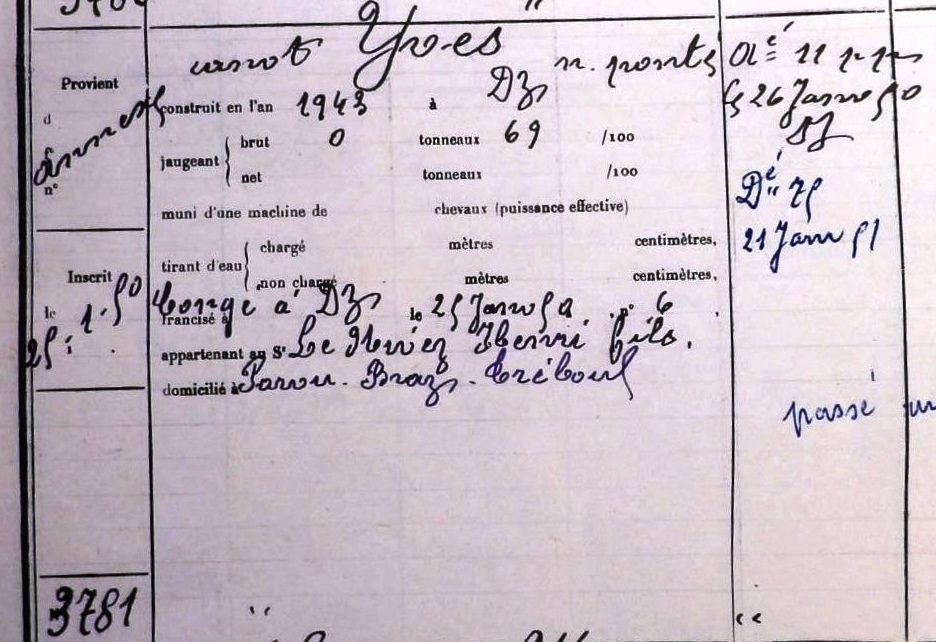 Provient
d
annexe
n°
Inscrit
le 25.1.50
3781
canot Yves n. ponté
construit en l'an 1943 à Dz
jaugeant brut 0 tonneaux 69 /100
net tonneaux /100
muni d'une machine de chevaux (puissance effective)
tirant d'eau chargé mètres centimètres,
non chargé mètres centimètres,
francisé à Dz le 25 Janv 50 n° 6
appartenant au Sr Henri fils.
domicilié à Braz. Tréboul
26 Janv 50
Dé 75
21 Janv 51
passé